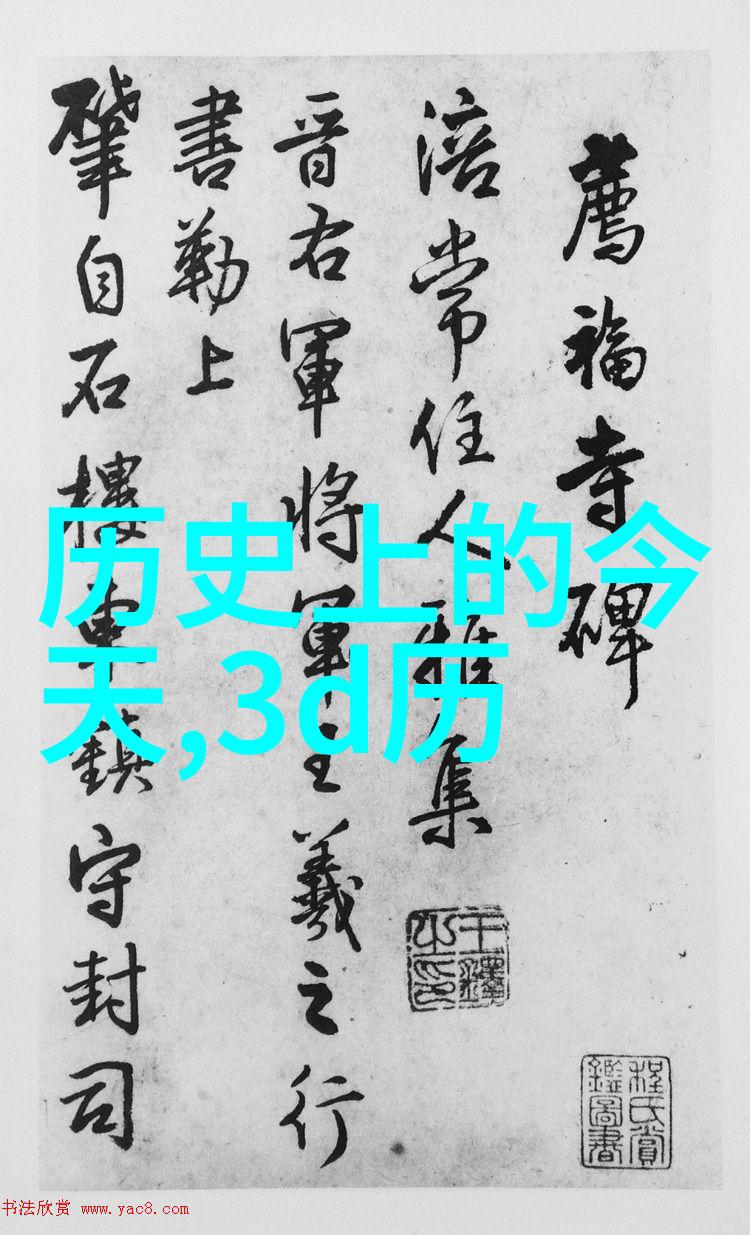 薦福寺碑
涪常住人雅集
晋右軍將軍王羲之行
書勒上
肇自石樓東鎮守封司
王鐸之印
程氏賞鑑圖書
历史上的今
天,3d历
书法欣赏 www.yac8.com